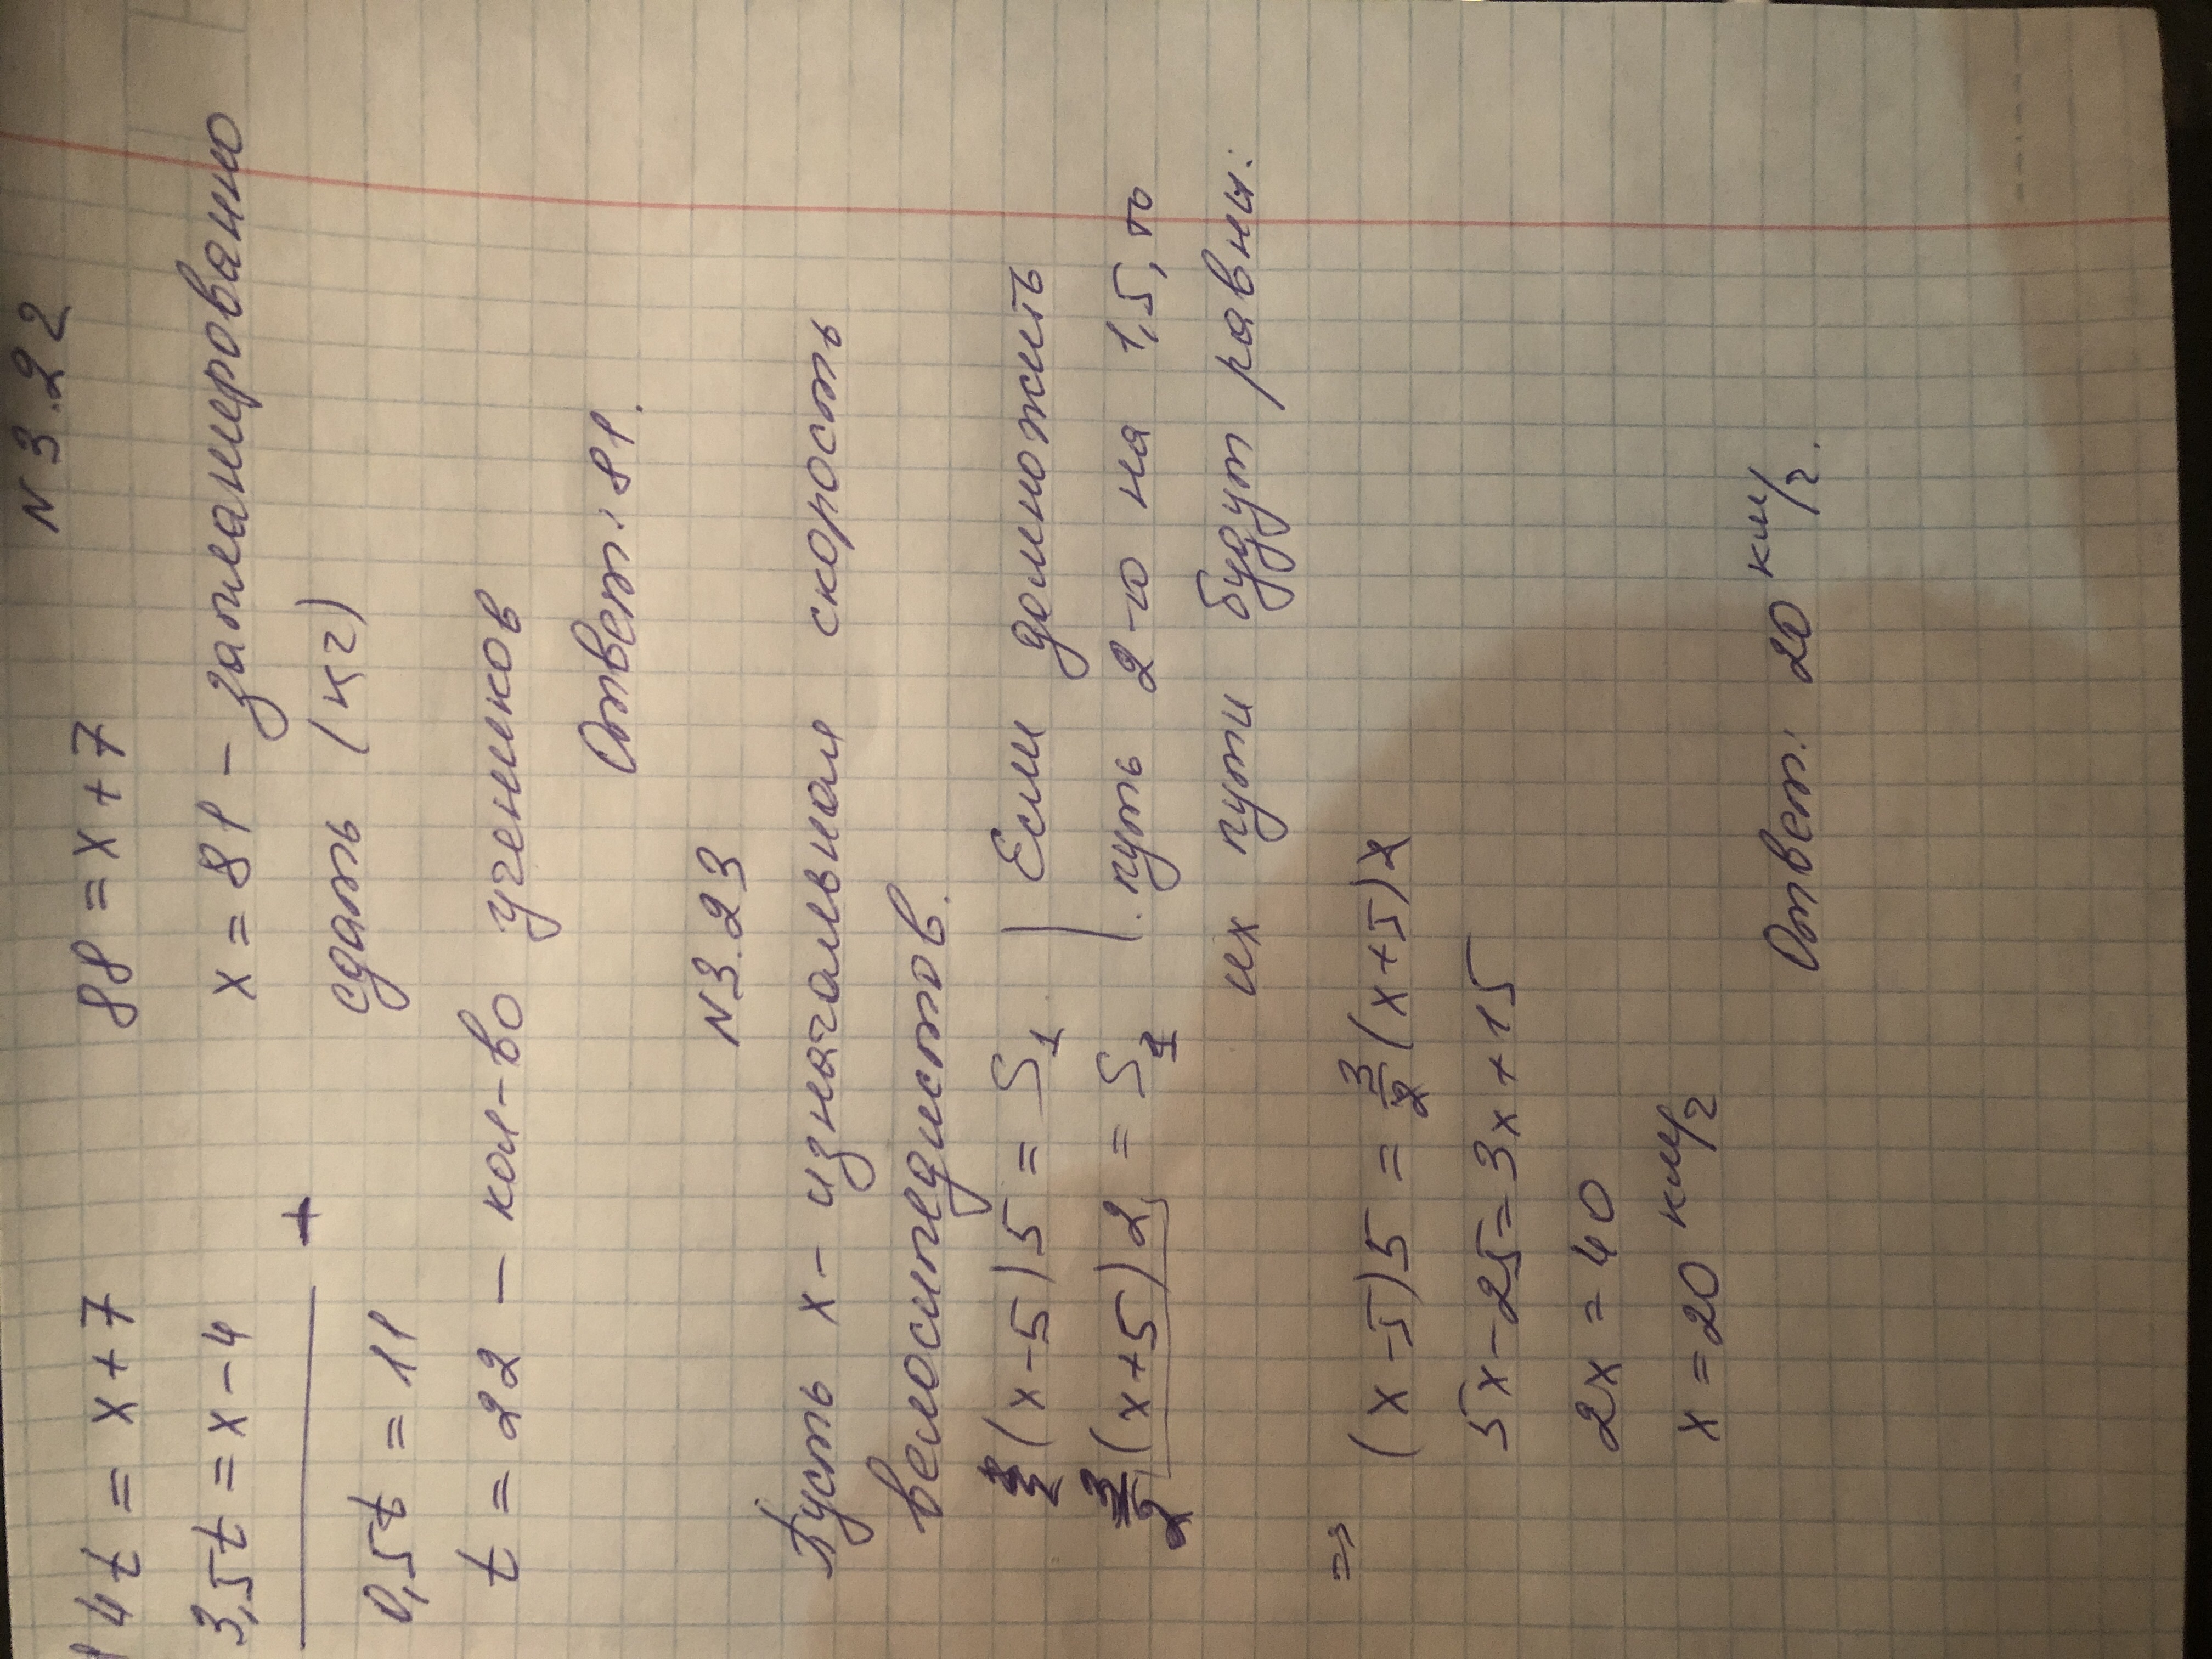 N 3.22
4t = x + 7 88 = x + 7
3,5t = x - 4 x = 81 - запланировано
+ сдать (кг)
0,5t = 11
t = 22 - кол-во учеников
Ответ: 81.
N3.23
Пусть x - изначальная скорость
велосипедистов.
(x-5)5 = S1 | Если домножить
(x+5)2 = S2 | путь 2-го на 1,5, то
их пути будут равны:
=> (x-5)5 = 3/2 (x+5)2
5x-25=3x+15
2x = 40
x = 20 км/г
Ответ: 20 км/г.